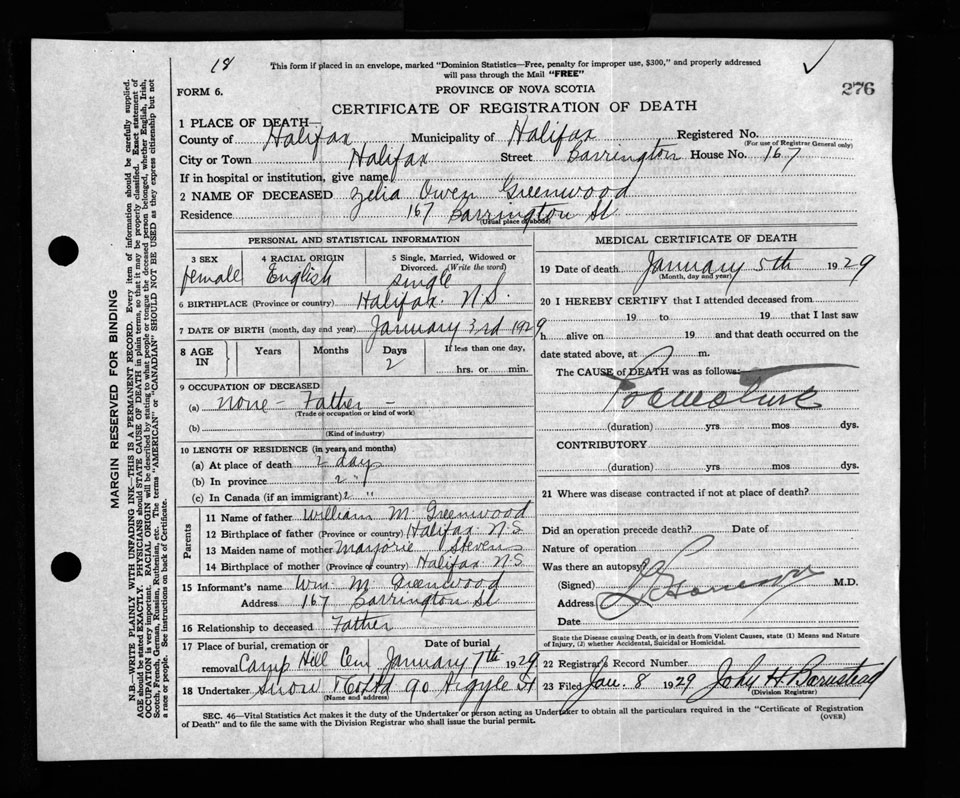 18
This form if placed in an envelope, marked "Dominion Statistics—Free, penalty for improper use, $300," and properly addressed
will pass through the Mail "FREE"
FORM 6.
PROVINCE OF NOVA SCOTIA
276
CERTIFICATE OF REGISTRATION OF DEATH
1 PLACE OF DEATH—
County of Halifax Municipality of Halifax Registered No.
(For use of Registrar General only)
City or Town Halifax Street Barrington House No. 167
If in hospital or institution, give name
2 NAME OF DECEASED Zelia Owen Greenwood
Residence 167 Barrington St
(Usual place of abode)
PERSONAL AND STATISTICAL INFORMATION
3 SEX female
4 RACIAL ORIGIN English
5 Single, Married, Widowed or
Divorced. (Write the word)
single
6 BIRTHPLACE (Province or country) Halifax. N.S.
7 DATE OF BIRTH (month, day and year) January 3rd 1929
8 AGE IN Years Months Days 2 If less than one day,
hrs. or min.
9 OCCUPATION OF DECEASED
(a) none - Father -
(Trade or occupation or kind of work)
(b)
(Kind of industry)
10 LENGTH OF RESIDENCE (in years and months)
(a) At place of death 2 days
(b) In province 2 "
(c) In Canada (if an immigrant) 2 "
Parents
11 Name of father William M. Greenwood
12 Birthplace of father (Province or country) Halifax N.S
13 Maiden name of mother Marjorie Stevens
14 Birthplace of mother (Province or country) Halifax N.S.
15 Informant's name Wm. M Greenwood
Address 167 Barrington St
16 Relationship to deceased Father
17 Place of burial, cremation or Date of burial
removal Camp Hill Cem January 7th 1929
18 Undertaker Snow & Co Ltd 90 Argyle St
(Name and address)
MEDICAL CERTIFICATE OF DEATH
19 Date of death January 5th 1929
(Month, day and year)
20 I HEREBY CERTIFY that I attended deceased from
19 to 19 that I last saw
h alive on 19 and that death occurred on the
date stated above, at m.
The CAUSE of DEATH was as follows:
Premature
(duration) yrs mos dys.
CONTRIBUTORY
(duration) yrs mos dys.
21 Where was disease contracted if not at place of death?
Did an operation precede death? Date of
Nature of operation
Was there an autopsy?
(Signed) M.D.
Address
Date
State the Disease causing Death, or in death from Violent Causes, state (1) Means and Nature
of Injury, (2) whether Accidental, Suicidal or Homicidal.
22 Registrar's Record Number
23 Filed Jan. 8 1929 John H. Barnstead
(Division Registrar)
SEC. 46—Vital Statistics Act makes it the duty of the Undertaker or person acting as Undertaker to obtain all the particulars required in the "Certificate of Registration
of Death" and to file the same with the Division Registrar who shall issue the burial permit.
(OVER)
MARGIN RESERVED FOR BINDING
N.B.—WRITE PLAINLY WITH UNFADING INK—THIS IS A PERMANENT RECORD. Every item of information should be carefully supplied.
AGE should be stated EXACTLY. PHYSICIANS should STATE CAUSE OF DEATH in plain terms, so that it may be properly classified. Exact statement of
OCCUPATION is very important. RACIAL ORIGIN will be described by stating to what people or tongue the deceased person belonged, whether English, Irish,
Scotch, French, German, Russian, Ruthenian, etc. The terms "AMERICAN" or "CANADIAN" SHOULD NOT BE USED as they express citizenship but not
a race or people. See instructions on back of Certificate.